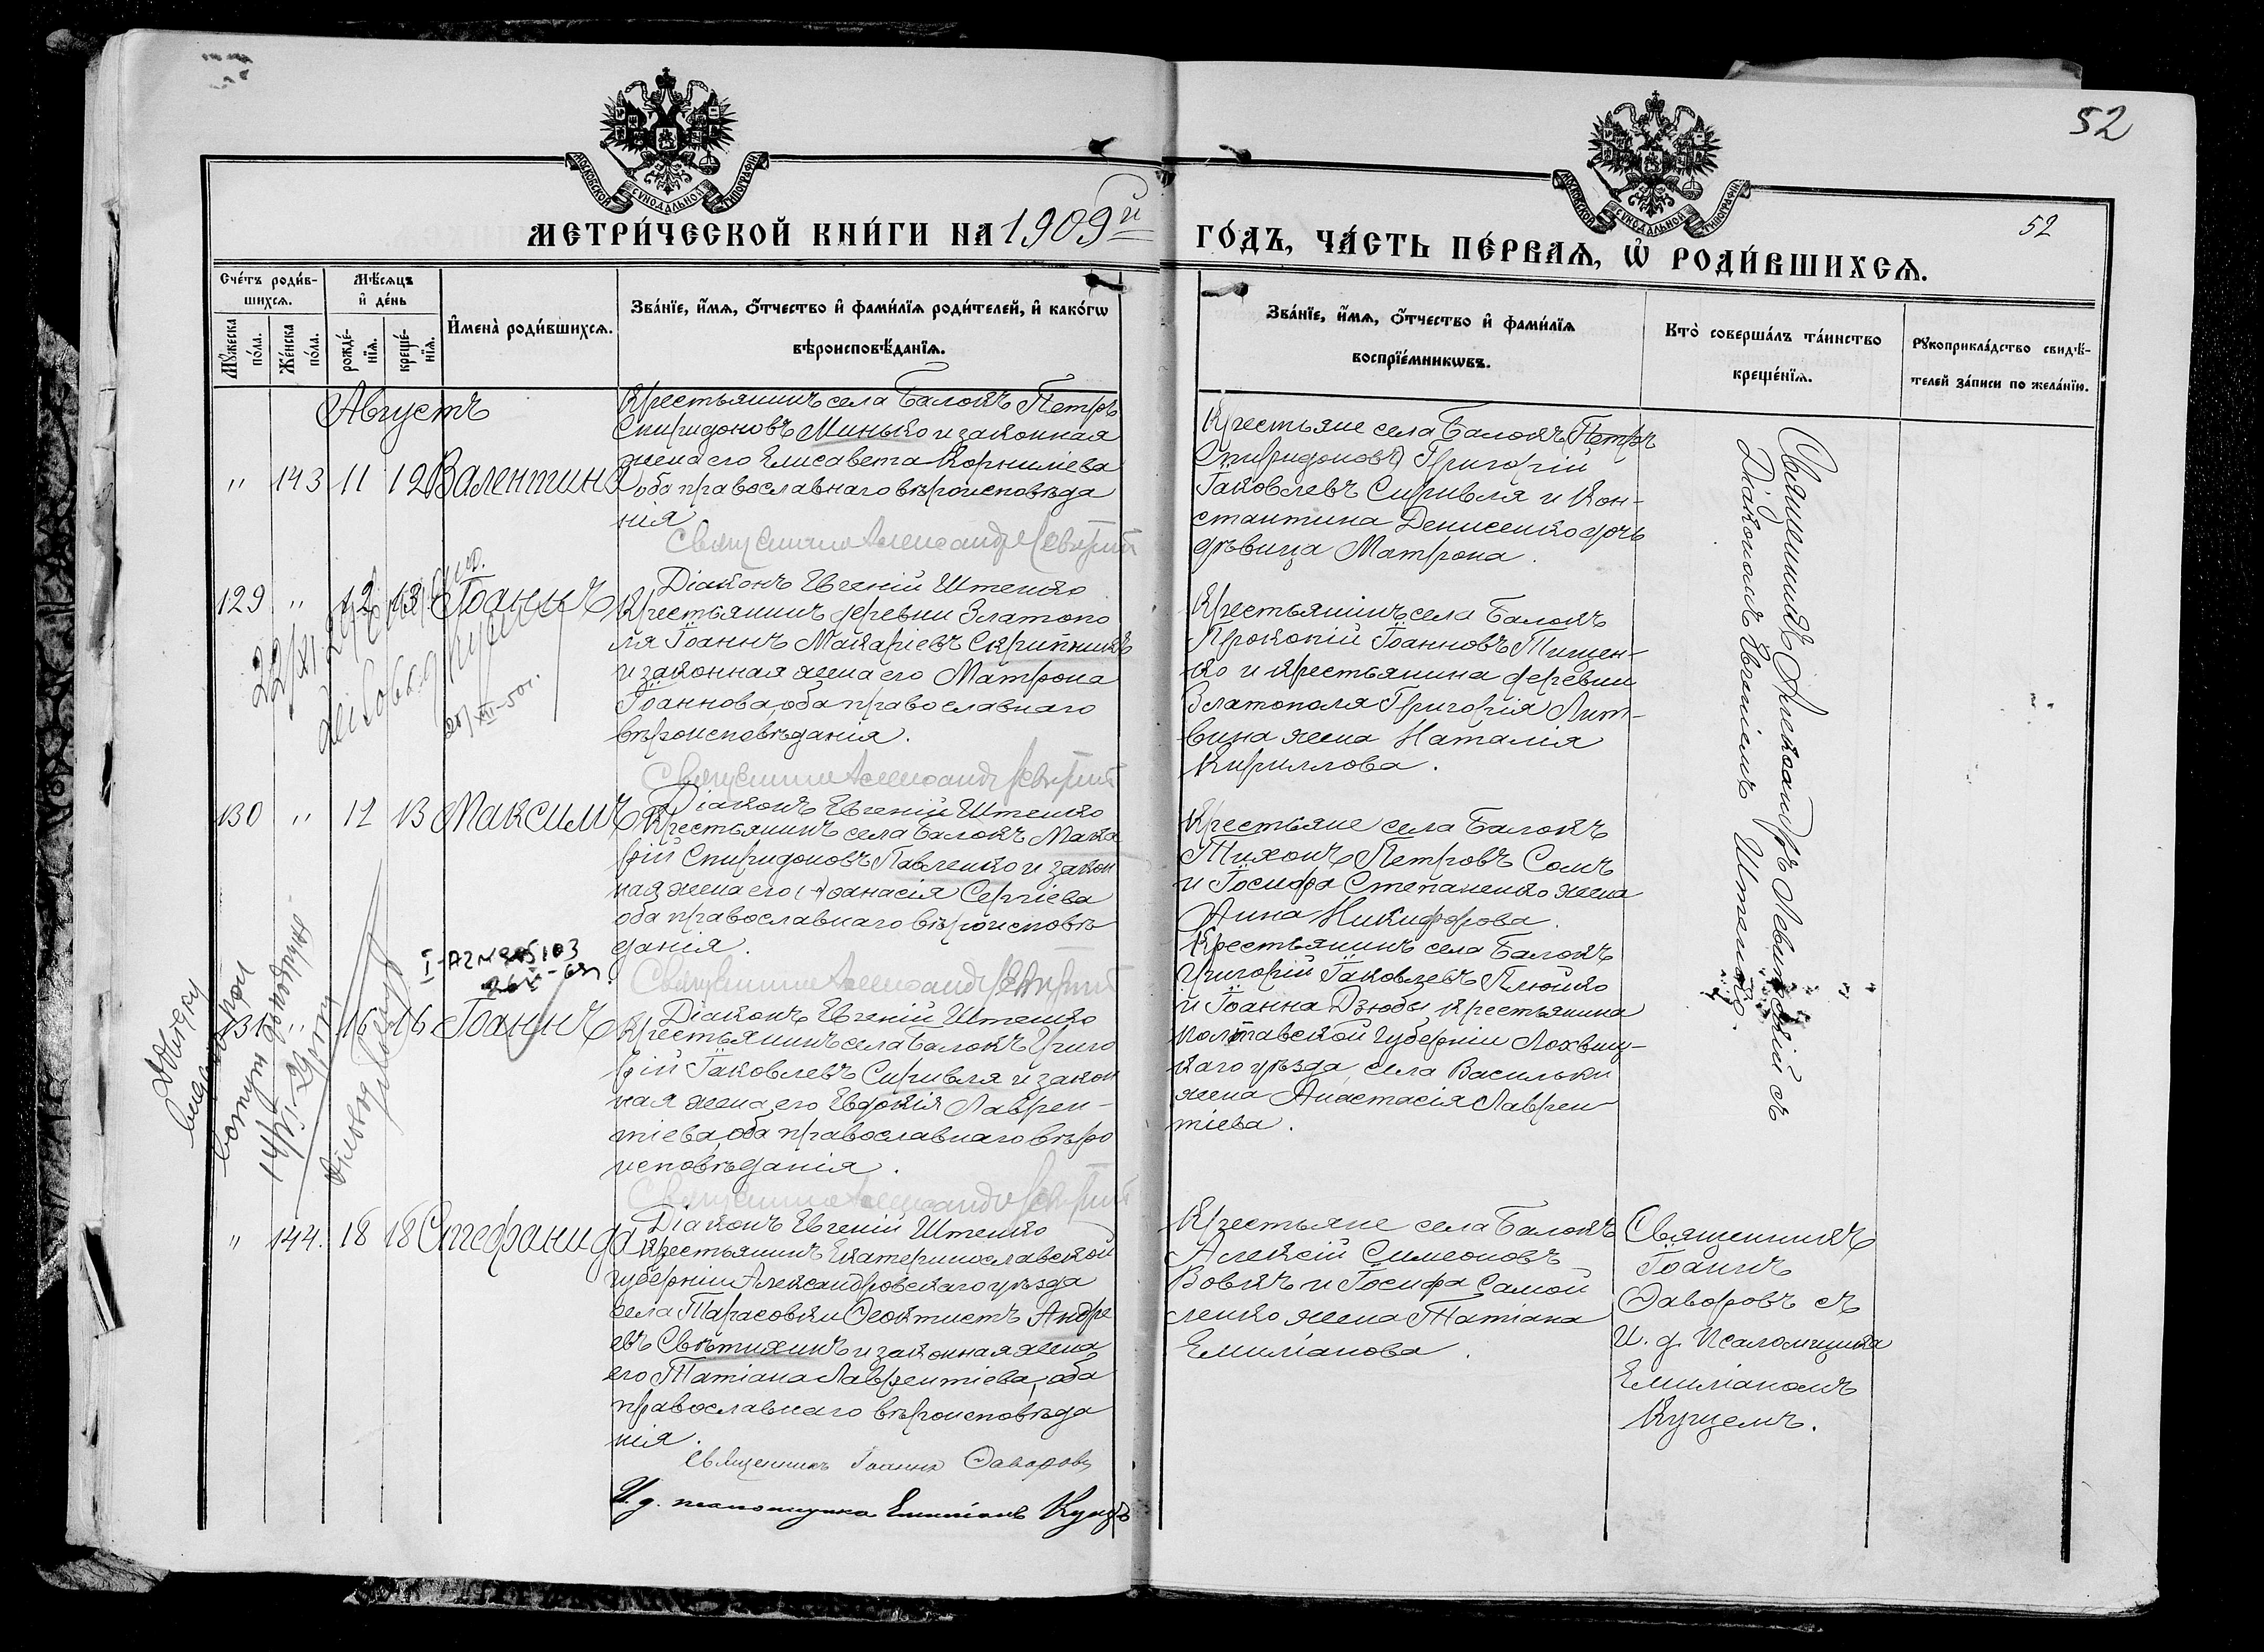 52
МОСКОВСКОЙ СѴНОДАЛЬНОЙ ТИПОГРАФІИ
МОСКОВСКОЙ СѴНОДАЛЬНОЙ ТИПОГРАФІИ
МЕТРИ́ЧЕСКОЙ КНИ́ГИ НА 1909й
ГО́ДЪ, ЧА́СТЬ ПЕ́РВАѦ, Ѡ҆ РОДИ́ВШИХСѦ.
52
Сче́тъ роди́в-
шихсѧ.
Мꙋ́жеска
по́ла.
Же́нска
по́ла.
Мѣ́сѧцъ
и҆ де́нь
рожде́-
нїѧ.
креще́-
нїѧ.
И҆мена̀ роди́вшихсѧ.
Зва́нїе, и҆́мѧ, ѻ҆́тчество и҆ фами́лїѧ роди́телей, и҆ како́гѡ
вѣроисповѣ́данїѧ.
Зва́нїе, и҆́мѧ, ѻ҆́тчество и҆ фами́лїѧ
воспрїе́мникѡвъ.
Кто̀ соверша́лъ та́инство
креще́нїѧ.
Рꙋкоприкла́дство свидѣ́-
телей за́писи по жела́нїю.
Августъ
" 143 11 12 Валентина
Крестьянинъ села Балокъ Петръ
Спиридоновъ Минько и законная
жена его Елисавета Корнилiева
оба православнаго вѣроисповѣда
нія
Священникъ Александръ Левитскій
Діаконъ Евгеній Штепко
Крестьяне села Балокъ (Петръ
Спиридоновъ) Григорій
Іаковлевъ Сиривля и Кон-
стантина Денисенко дочь
дѣвица Матрона.
Священникъ Александръ Левитскій съ
Діакономъ Евгеніемъ Штепко.
129 " 12 13 Іоаннъ
Крестьянинъ деревни Златопо
ля Іоаннъ Макаріевъ Скрипникъ
и законная жена его Матрона
Іоаннова, оба православнаго
вѣроисповѣданія.
Священникъ Александръ Левитскій
Діаконъ Евгеній Штепко
Крестьянинъ села Балокъ
Прокопій Іоанновъ Тищен-
ко и крестьянина деревни
Златополя Григорія Лит-
вина жена Наталія
Кириллова.
22/XI
XII-50г.
130 " 12 13 Максимъ
Крестьянинъ села Балокъ Мака
рій Спиридоновъ Павленко и закон
ная жена его Аѳанасія Сергіева
оба православнаго вѣроисповѣ
данія.
Священникъ Александръ Левитскій
Діаконъ Евгеній Штепко
Крестьяне села Балокъ
Тихонъ Петровъ Сомъ
и Іосифа Степаненко жена
Анна Никифорова.
131 " 15 16 Іоаннъ
Крестьянинъ села Балокъ Григо
рій Іаковлевъ Сиривля и закон
ная жена его Евдокія Лаврен-
тіева, оба православнаго вѣро
исповѣданія.
Священникъ Александръ Левитскій
Діаконъ Евгеній Штепко
Крестьянинъ села Балокъ
Григорій Іаковлевъ Плюйко
и Іоанна Дзюбы крестьянина
Полтавской губерніи Лохвиц-
каго уѣзда, села Васильки
жена Анастасія Лаврен-
тіева.
" 144. 18 18 Стефанида
Крестьянинъ Екатеринославской
губерніи Александровскаго уѣзда
села Тарасовки Ѳеоктистъ Андре
евъ Свѣтикинъ и законная жена
его Татіана Лаврентіева, оба
православнаго вѣроисповѣда
нія.
Священникъ Іоаннъ Ѳаворовъ
И. д. псаломщика Емиліанъ Куцъ
Крестьяне села Балокъ
Алексій Симеоновъ
Вовкъ и Іосифа Самой
ленко жена Татіана
Емиліанова.
Священникъ
Іоаннъ
Ѳаворовъ съ
И. д. псаломщика
Емиліаномъ
Куцемъ.